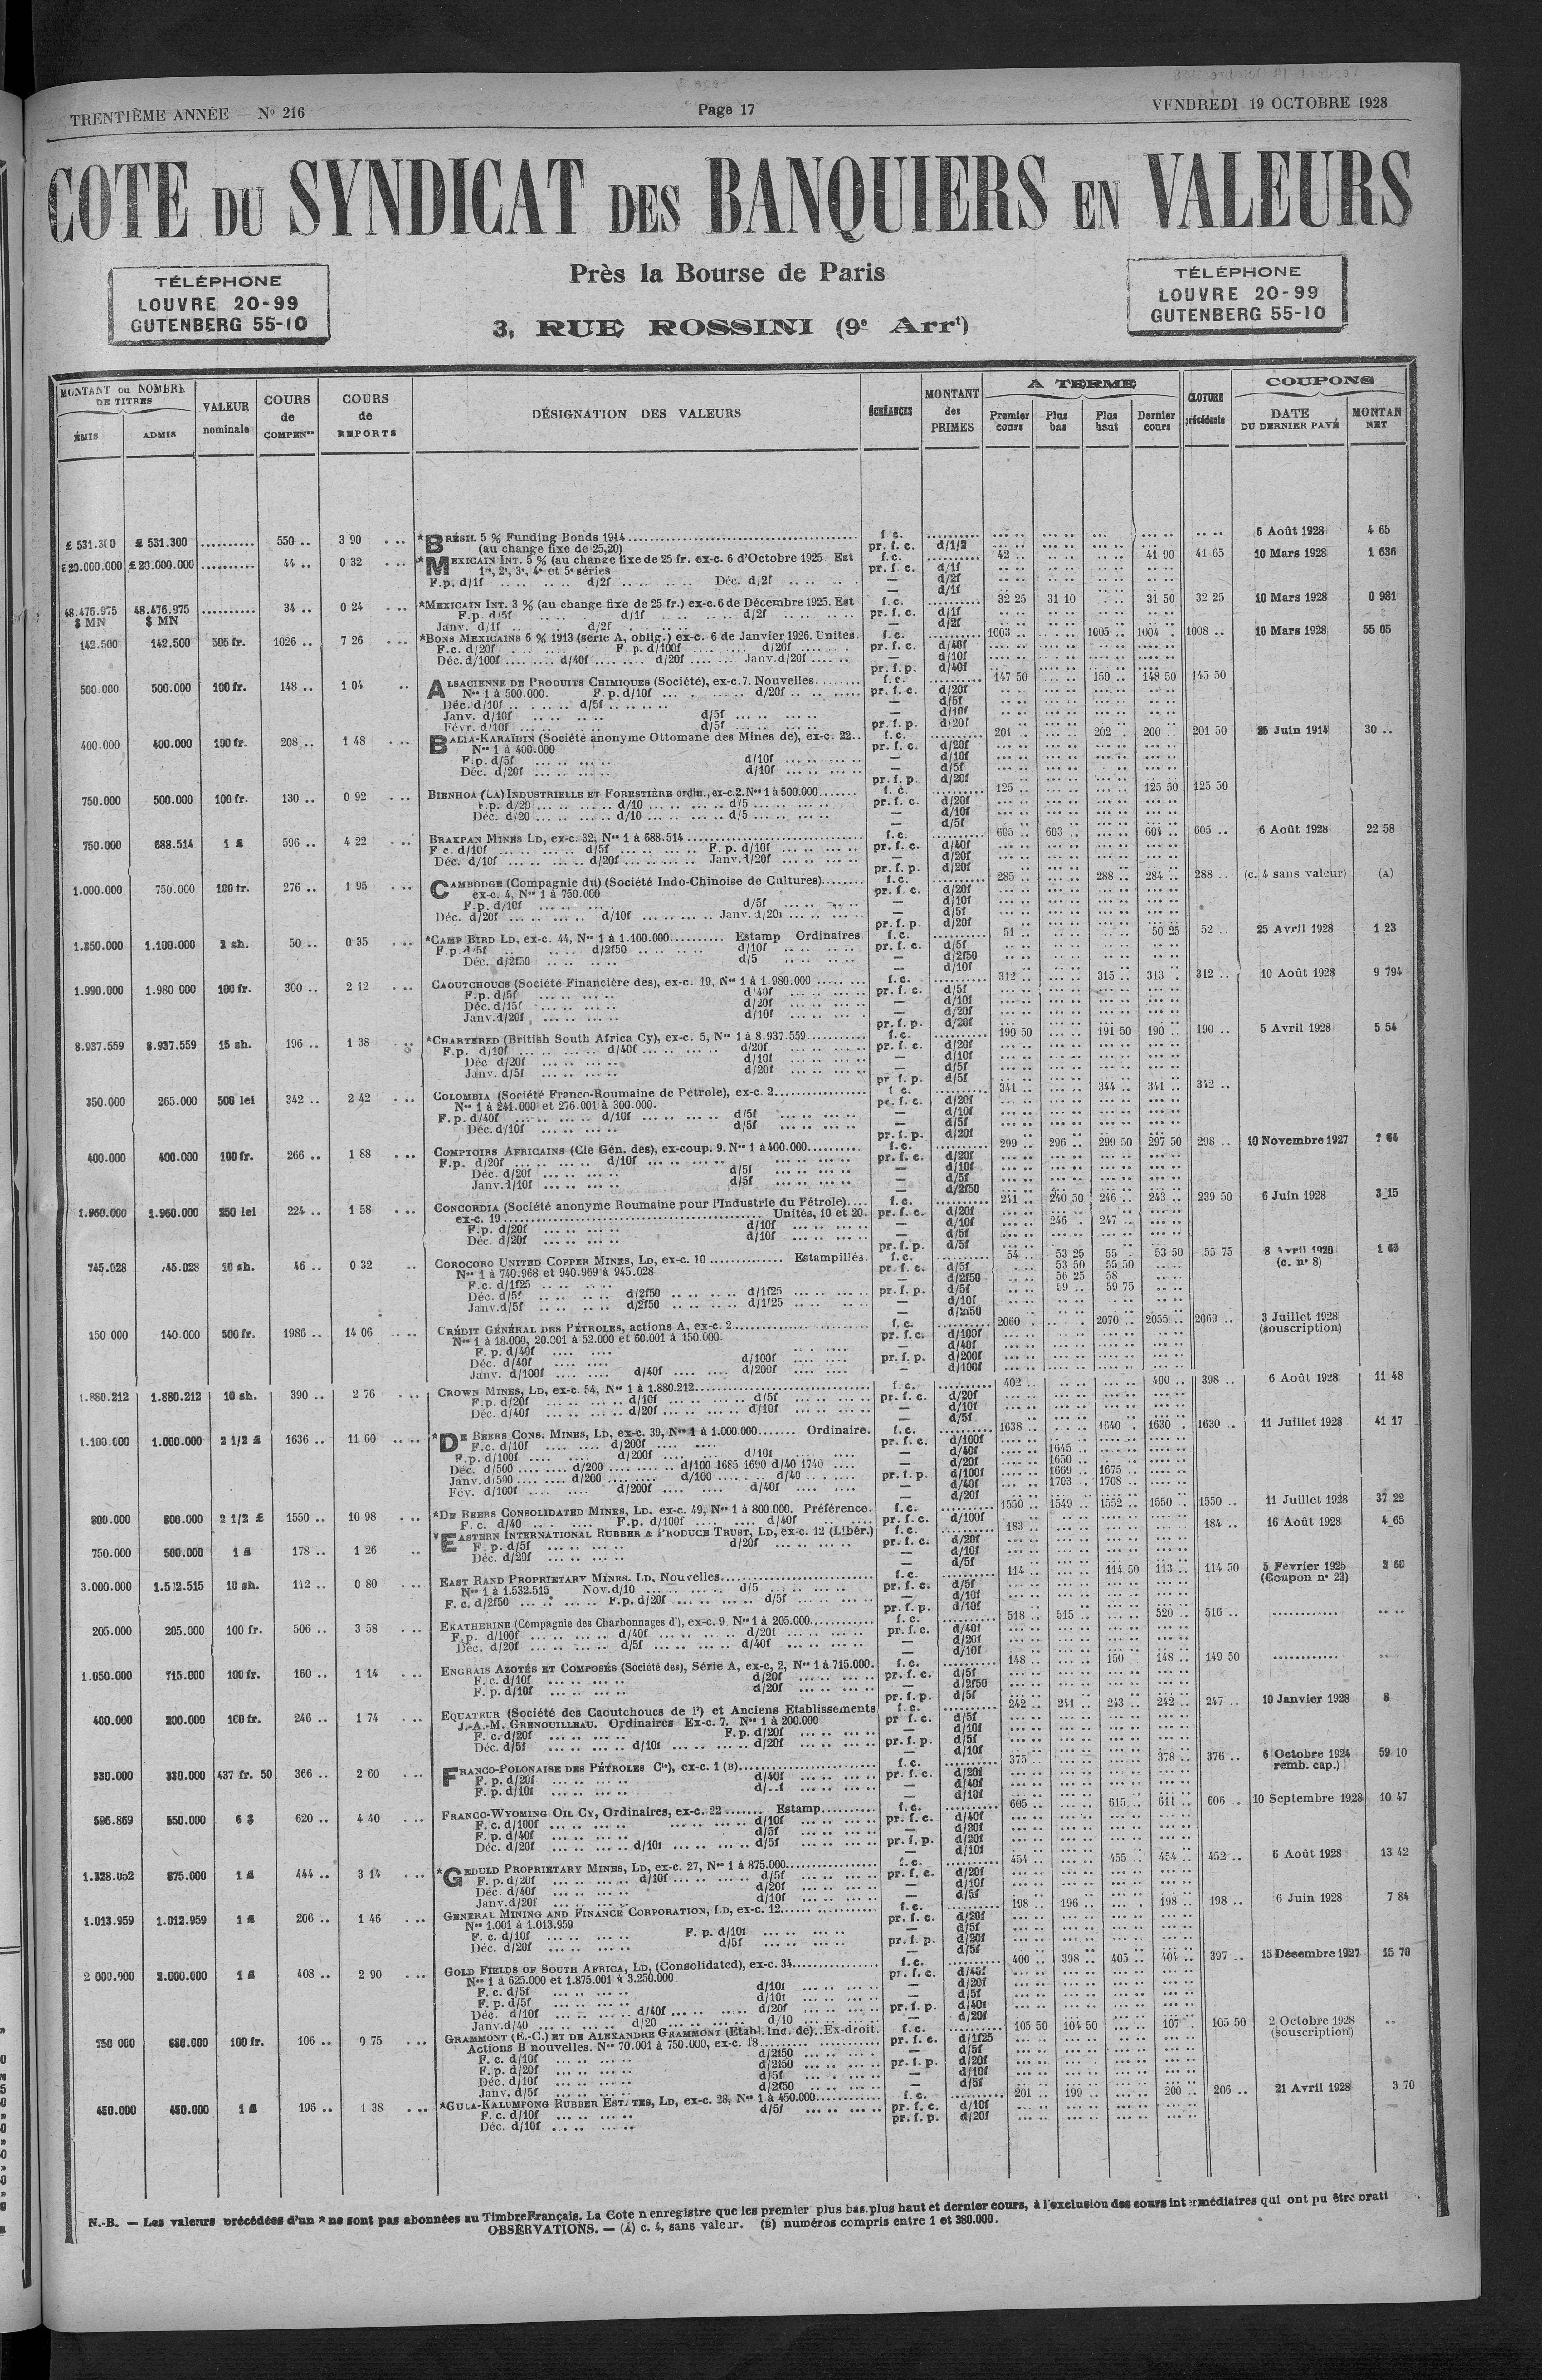 TRENTIÈME ANNÉE — Nº 216
Page 17
VENDREDI 19 OCTOBRE 1928
COTE DU SYNDICAT DES BANQUIERS EN VALEURS
Près la Bourse de Paris
3, RUE ROSSINI (9e Arrt)
TÉLÉPHONE
LOUVRE 20-99
GUTENBERG 55-10
TÉLÉPHONE
LOUVRE 20-99
GUTENBERG 55-10
MONTANT ou NOMBRE DE TITRES
ÉMIS ADMIS
VALEUR nominale
COURS de COMPENon
COURS de REPORTS
DÉSIGNATION DES VALEURS
ÉCHÉANCES
MONTANT des PRIMES
A TERME
Premier cours Plus bas Plus haut Dernier cours
CLOTURE précédente
COUPONS
DATE DU DERNIER PAYÉ
MONTAN NET
£ 531.300 £ 531.300 .......... 550 .. 3 90 *BRÉSIL 5 % Funding Bonds 1914 f c. 6 Août 1928 4 65
(au change fixe de 25,20) pr. f. c. d/1/2
£20.000.000 £20.000.000 .......... 44 .. 0 32 *MEXICAIN INT. 5 % (au change fixe de 25 fr. ex-c. 6 d'Octobre 1925. Est f.c. 42 .. 41 90 41 65 10 Mars 1928 1 636
1re, 2e, 3e, 4e et 5e séries pr. f. c. d/1f
F.p. d/1f d/2f Déc. d/2f — d/2f
— d/1f
48.476.975 $ MN 48.476.975 $ MN .......... 34 .. 0 24 *MEXICAIN INT. 3 % (au change fixe de 25 fr.) ex-c. 6 de Décembre 1925. Est f.c. 32 25 31 10 31 50 32 25 10 Mars 1928 0 981
F.p. d/5f d/1f d/2f pr. f. c. d/1f
Janv. d/1f d/2f — d/2f
142.500 142.500 505 fr. 1026 .. 7 26 *BONS MEXICAINS 6 % 1913 (série A, oblig.) ex-c. 6 de Janvier 1926. Unités. f.c. 1003 .. 1005 .. 1004 . 1008 .. 10 Mars 1928 55 05
F.c. d/20f F. p. d/100f d/20f pr. f. c. d/40f
Déc. d/100f d/40f d/20f Janv. d/20f — d/10f
pr. f. p. d/40f
500.000 500.000 100 fr. 148 .. 1 04 ALSACIENNE DE PRODUITS CHIMIQUES (Société), ex-c. 7. Nouvelles f.c. 147 50 150 .. 148 50 145 50
Nos 1 à 500.000. F.p. d/10f d/20f pr. f. c. d/20f
Déc. d/10f d/5f — d/5f
Janv. d/10f d/5f — d/10f
Févr. d/10f d/5f pr. f. p. d/20f
400.000 400.000 100 fr. 208 .. 1 48 BALIA-KARAÏDIN (Société anonyme Ottomane des Mines de), ex-c. 22 f. c. 201 .. 202 . 200 .. 201 50 25 Juin 1914 30 ..
Nos 1 à 400.000 pr. f. c. d/20f
F.p. d/5f d/10f — d/10f
Déc. d/20f d/10f — d/5f
pr. f. p. d/20f
750.000 500.000 100 fr. 130 .. 0 92 BIENHOA (LA) INDUSTRIELLE ET FORESTIÈRE ordin., ex-c. 2. Nos 1 à 500.000 f. c. 125 .. 125 50 125 50
F.p. d/20 d/10 d/5 pr. f. c. d/20f
Déc. d/20 d/10 d/5 — d/10f
— d/5f
750.000 688.514 1 £ 596 .. 4 22 BRAKPAN MINES LD, ex-c. 32, Nos 1 à 688.514 f. c. 605 .. 603 .. 604 .. 605 .. 6 Août 1928 22 58
F c. d/10f d/5f F. p. d/10f pr. f. c. d/40f
Déc. d/10f d/20f Janv. d/20f — d/20f
pr. f. p. d/20f
1.000.000 750.000 100 fr. 276 .. 1 95 CAMBODGE (Compagnie du) (Société Indo-Chinoise de Cultures) f. c. 285 .. 288 .. 284 .. 288 .. (c. 4 sans valeur) (A)
ex-c. 4, Nos 1 à 750.000 pr. f. c. d/20f
F.p. d/10f d/5f — d/10f
Déc. d/20f d/10f Janv. d/20f — d/5f
pr. f. p. d/20f
1.350.000 1.100.000 2 sh. 50 .. 0 35 *CAMP BIRD LD, ex-c. 44, Nos 1 à 1.100.000 Estamp Ordinaires f. c. 51 .. 50 25 52 .. 25 Avril 1928 1 23
F.p. d/5f d/2f50 d/10f pr. f. c. d/5f
Déc. d/2f50 d/5 — d/2f50
— d/10f
1.990.000 1.980 000 100 fr. 300 .. 2 12 CAOUTCHOUCS (Société Financière des), ex-c. 19, Nos 1 à 1.980.000 f. c. 312 .. 315 .. 313 .. 312 .. 10 Août 1928 9 794
F.p. d/5f d/40f pr. f. c. d/5f
Déc. d/15f d/20f — d/10f
Janv. d/20f d/10f — d/20f
pr. f. p. d/20f
8.937.559 8.937.559 15 sh. 196 .. 1 38 *CHARTERED (British South Africa Cy), ex-c. 5, Nos 1 à 8.937.559 f. c. 190 50 191 50 190 .. 190 .. 5 Avril 1928 5 54
F.p. d/10f d/40f d/20f pr. f. c. d/20f
Déc d/20f d/10f — d/10f
Janv. d/5f d/20f — d/5f
pr f. p. d/5f
350.000 265.000 500 lei 342 .. 2 42 COLOMBIA (Société Franco-Roumaine de Pétrole), ex-c. 2 f c. 341 .. 344 .. 341 .. 342 ..
Nos 1 à 241.000 et 276.001 à 300.000. pr. f. c. d/20f
F.p. d/40f d/10f d/5f — d/10f
Déc. d/10f d/5f — d/5f
pr. f. p. d/20f
400.000 400.000 100 fr. 266 .. 1 88 COMPTOIRS AFRICAINS (Cie Gén. des), ex-coup. 9. Nos 1 à 400.000 f. c. 299 .. 296 .. 299 50 297 50 298 .. 10 Novembre 1927 7 64
F.p. d/20f d/10f pr. f. c. d/20f
Déc. d/20f d/5f — d/10f
Janv. d/10f d/5f — d/5f
— d/2f50
1.960.000 1.960.000 250 lei 224 .. 1 58 CONCORDIA (Société anonyme Roumaine pour l'Industrie du Pétrole) f. c. 241 .. 240 50 246 .. 243 .. 239 50 6 Juin 1928 3 15
ex-c. 19 Unités, 10 et 20. pr. f. c. d/20f
F.p. d/20f d/10f — d/10f 246 . 247 ..
Déc. d/20f d/10f — d/5f
pr. f. p. d/5f
745.028 745.028 10 sh. 46 .. 0 32 COROCORO UNITED COPPER MINES, LD, ex-c. 10 Estampillés. f. c. 54 .. 53 25 55 . 53 50 55 75 8 Avril 1920 (c. nº 8) 1 63
Nos 1 à 740.968 et 940.969 à 945.028 pr. f. c. d/5f 53 50 55 50
F.c. d/1f25 — d/2f50 56 25 58
Déc. d/5f d/2f50 d/1f25 pr. f. p. d/5f 59 .. 59 75
Janv. d/5f d/2f50 d/1f25 — d/10f
— d/2f50
150 000 140.000 500 fr. 1986 .. 14 06 CRÉDIT GÉNÉRAL DES PÉTROLES, actions A, ex-c. 2 f. c. 2060 .. 2070 .. 2055 .. 2069 .. 3 Juillet 1928 (souscription)
Nos 1 à 18.000, 20.001 à 52.000 et 60.001 à 150.000. pr. f. c. d/100f
F. p. d/40f — d/40f
Déc. d/40f d/100f pr. f. p. d/200f
Janv. d/100f d/40f d/200f — d/100f
1.880.212 1.880.212 10 sh. 390 .. 2 76 CROWN MINES, LD, ex-c. 54, Nos 1 à 1.880.212 f. c. 402 .. 400 .. 398 .. 6 Août 1928 11 48
F.p. d/20f d/10f d/5f pr. f. c. d/20f
Déc. d/40f d/20f d/10f — d/10f
— d/5f
1.100.000 1.000.000 2 1/2 £ 1636 .. 11 60 *DE BEERS CONS. MINES, LD, ex-c. 39, Nos 1 à 1.000.000 Ordinaire. f. c. 1638 .. 1640 .. 1630 .. 1630 .. 11 Juillet 1928 41 17
F.c. d/10f d/200f pr. f. c. d/100f
F.p. d/100f d/200f d/10f — d/40f 1645 ..
Déc. d/500 d/200 d/100 1685 1690 d/40 1740 — d/20f 1650 ..
Janv. d/500 d/200 d/100 d/40 pr. f. p. d/100f 1669 .. 1675 ..
Fév. d/100f d/200f d/40f — d/40f 1703 .. 1708 ..
— d/20f
800.000 800.000 2 1/2 £ 1550 .. 10 98 *DE BEERS CONSOLIDATED MINES, LD, ex-c. 49, Nos 1 à 800.000. Préférence. f. c. 1550 .. 1549 .. 1552 .. 1550 .. 1550 .. 11 Juillet 1928 37 22
F. c. d/40 F.p. d/100f d/40f pr. f. c. d/100f
750.000 500.000 1 £ 178 .. 1 26 *EASTERN INTERNATIONAL RUBBER & PRODUCE TRUST, LD, ex-c. 12 (Libér.) f. c. 183 .. 184 .. 16 Août 1928 4 65
F. p. d/5f d/20f pr. f. c. d/20f
Déc. d/20f — d/10f
— d/5f
3.000.000 1.532.515 10 sh. 112 .. 0 80 EAST RAND PROPRIETARY MINES. LD, Nouvelles f. c. 114 .. 114 50 113 .. 114 50 5 Février 1925 (Coupon nº 23)
Nos 1 à 1.532.515 Nov. d/10 d/5 pr. f. c. d/5f
F. c. d/2f50 F.p. d/20f d/5f — d/10f
pr. f. p. d/10f
205.000 205.000 100 fr. 506 .. 3 58 EKATHERINE (Compagnie des Charbonnages d'), ex-c. 9. Nos 1 à 205.000 f. c. 518 .. 515 .. 520 .. 516 ..
F.p. d/100f d/40f d/20f pr. f. c. d/40f
Déc. d/20f d/5f d/40f — d/20f
— d/10f
1.050.000 715.000 100 fr. 160 .. 1 14 ENGRAIS AZOTÉS ET COMPOSÉS (Société des), Série A, ex-c. 2, Nos 1 à 715.000. f. c. 148 .. 150 148 .. 149 50
F. c. d/10f d/20f pr. f. c. d/5f
F. p. d/10f d/20f — d/2f50
pr. f. p. d/5f
400.000 200.000 100 fr. 246 .. 1 74 EQUATEUR (Société des Caoutchoucs de l') et Anciens Etablissements f. c. 242 .. 241 .. 243 .. 242 .. 247 .. 10 Janvier 1928 8
J.-A.-M. GRENOUILLEAU. Ordinaires Ex-c. 7. Nos 1 à 200.000 pr f. c. d/5f
F. c. d/20f F. p. d/20f — d/10f
Déc. d/5f d/10f d/20f pr. f. p. d/5f
— d/10f
330.000 330.000 437 fr. 50 366 .. 2 60 FRANCO-POLONAISE DES PÉTROLES Cie), ex-c. 1 (B) f. c. 375 .. 378 .. 376 .. 6 Octobre 1924 remb. cap.) 59 10
F. p. d/20f d/40f pr. f. c. d/20f
F. p. d/10f d/..f — d/40f
— d/10f
596.869 550.000 6 $ 620 .. 4 40 FRANCO-WYOMING OIL CY, Ordinaires, ex-c. 22 Estamp f. c. 605 .. 615 .. 611 .. 606 .. 10 Septembre 1928 10 47
F. c. d/100f d/10f pr. f. c. d/40f
F. p. d/40f d/5f — d/20f
Déc. d/20f d/10f d/5f pr. f. p. d/20f
— d/10f
1.328.052 875.000 1 £ 444 .. 3 14 *GEDULD PROPRIETARY MINES, LD, ex-c. 27, Nos 1 à 875.000 f. c. 454 .. 455 .. 454 .. 452 .. 6 Août 1928 13 42
F. p. d/20f d/10f d/5f pr. f. c. d/20f
Déc. d/40f d/20f — d/10f
Janv. d/20f d/10f — d/5f
1.013.959 1.012.959 1 £ 206 .. 1 46 GENERAL MINING AND FINANCE CORPORATION, LD, ex-c. 12 f. c. 198 .. 196 .. 198 .. 198 .. 6 Juin 1928 7 84
Nos 1.001 à 1.013.959 pr. f. c. d/20f
F. c. d/10f F. p. d/10f — d/5f
Déc. d/20f d/5f pr. f. p. d/20f
— d/5f
2 000.000 2.000.000 1 £ 408 .. 2 90 GOLD FIELDS OF SOUTH AFRICA, LD, (Consolidated), ex-c. 34 f. c. 400 .. 398 .. 405 .. 404 .. 397 .. 15 Décembre 1927 15 70
Nos 1 à 625.000 et 1.875.001 à 3.250.000 pr. f. c. d/40f
F. c. d/5f d/10f — d/20f
F. p. d/5f d/10f — d/5f
Déc. d/10f d/40f d/20f pr. f. p. d/40f
Janv. d/40 d/20 d/10 — d/20f
750 000 680.000 100 fr. 106 .. 0 75 GRAMMONT (E.-C.) ET DE ALEXANDRE GRAMMONT (Etabl. Ind. de). Ex-droit. f. c. 105 50 104 50 107 .. 105 50 2 Octobre 1928 (souscription)
Actions B nouvelles. Nos 70.001 à 750.000, ex-c. 18 pr. f. c. d/1f25
F. c. d/10f d/2f50 — d/5f
F. p. d/20f d/2f50 pr. f. p. d/20f
Déc. d/10f d/5f — d/10f
Janv. d/5f d/2f50 — d/5f
450.000 450.000 1 £ 196 .. 1 38 *GULA-KALUMPONG RUBBER ESTATES, LD, ex-c. 28, Nos 1 à 450.000 f. c. 201 .. 199 .. 200 .. 206 .. 21 Avril 1928 3 70
F. c. d/10f d/5f pr. f. c. d/10f
Déc. d/10f pr. f. p. d/20f
N.-B. — Les valeurs précédées d'un * ne sont pas abonnées au Timbre Français. La Cote n enregistre que les premier plus bas, plus haut et dernier cours, à l'exclusion des cours intermédiaires qui ont pu être prati
OBSERVATIONS. — (A) c. 4, sans valeur. (B) numéros compris entre 1 et 380.000.